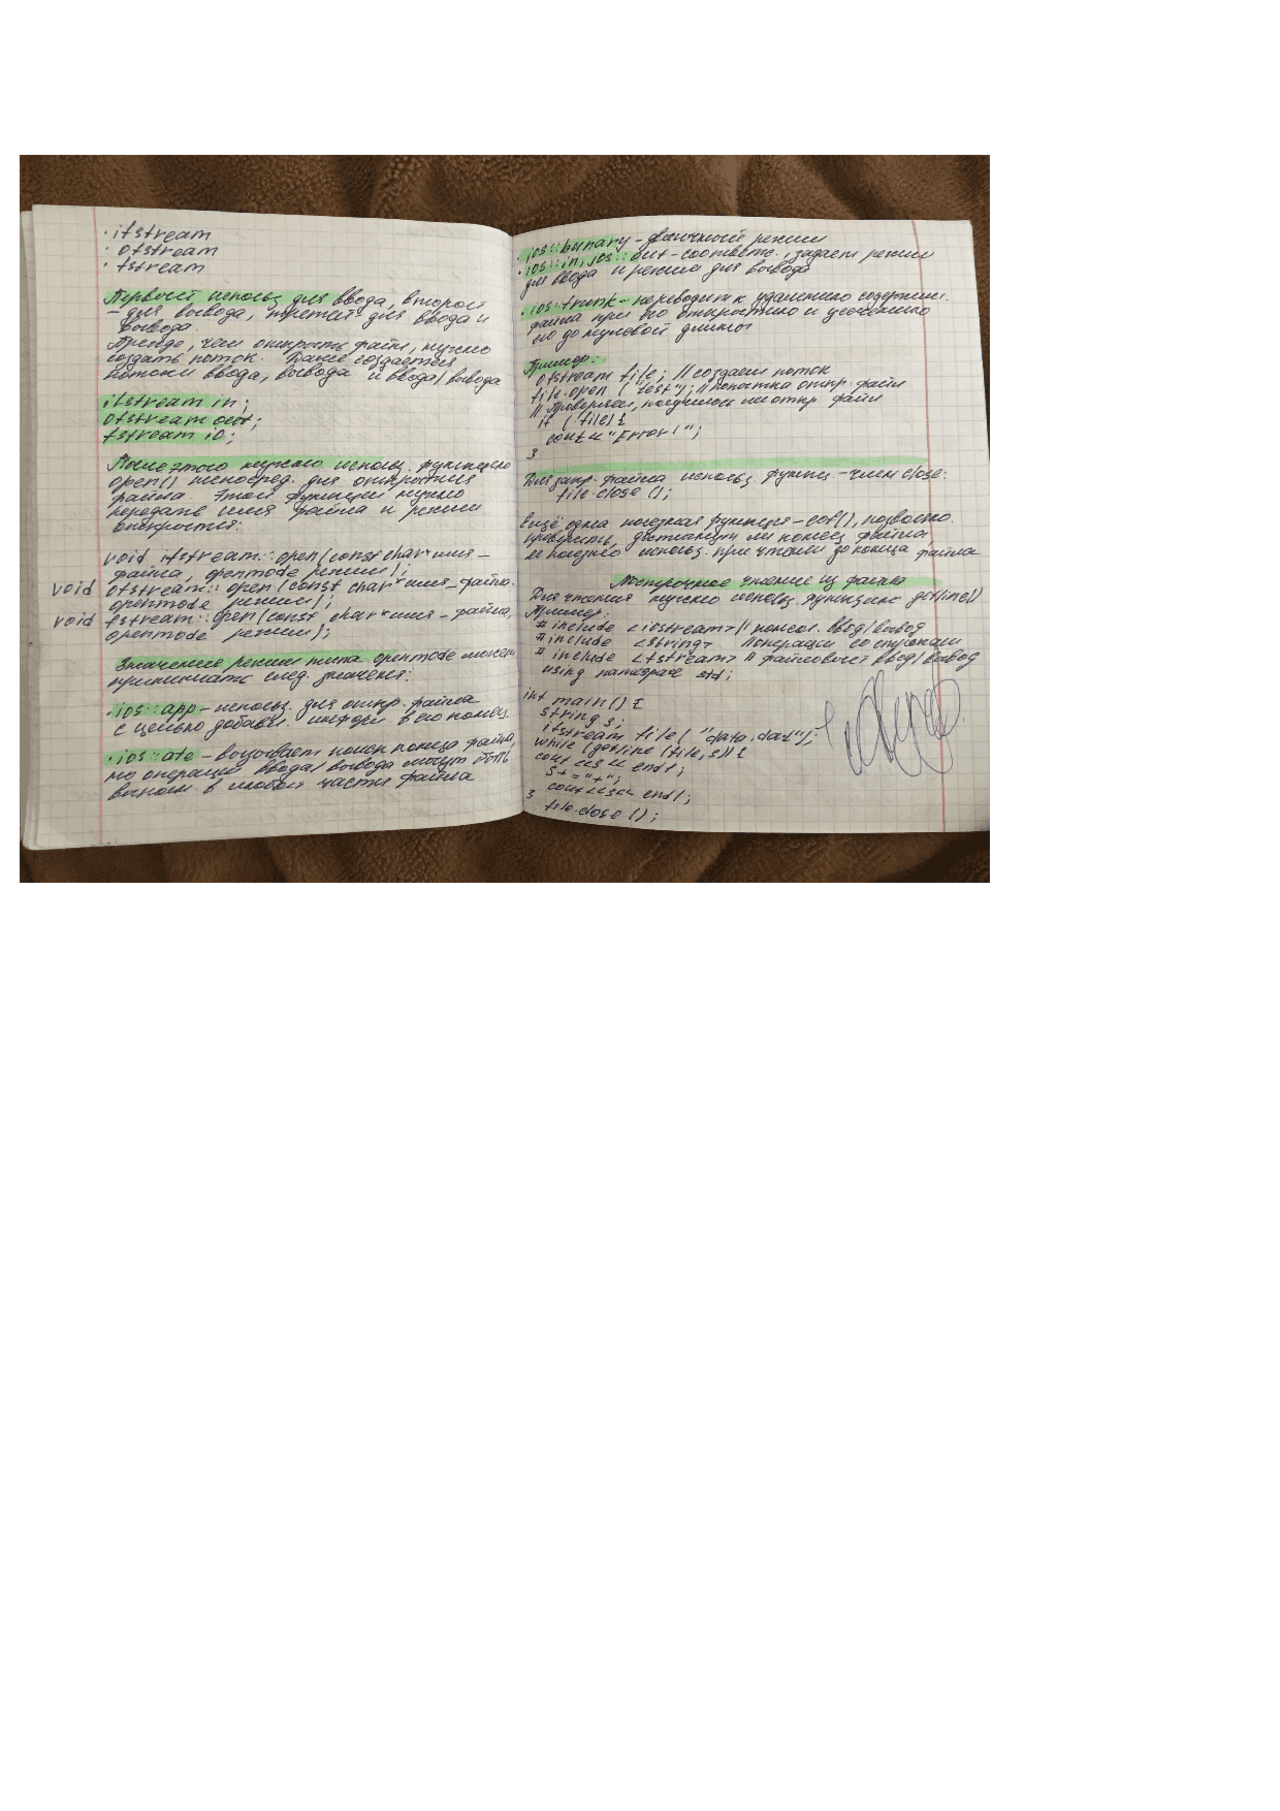 · ifstream
· ofstream
· fstream
Первый использ для ввода, второй
– для вывода, третий для ввода и
вывода.
Прежде, чем открыть файл, нужно
создать поток. Далее создается
потоки ввода, вывода и ввода/вывода
ifstream in;
ofstream out;
fstream io;
После этого нужно использ. функцию
open() непосред. для открытия
файла. Этой функции нужно
передать имя файла и режим
открытия:
void ifstream::open(const char*имя–
файла, openmode режим);
void ofstream::open(const char*имя_файла.
openmode режим);
void fstream::open(const char*имя_файла,
openmode режим);
Значение режим типа openmode может
принимать след. значения:
·ios::app – использ. для откр. файла
с целью добавл. информ. в его конец.
·ios::ate – вызывает поиск конца файла,
но операции ввода/вывода могут быть
выполн в любой части файла
·ios::binary – двоичный режим
·ios::in, ios::out – соответств., задает режим
для ввода и режим для вывода
·ios::trunk – переводит к удалению содержим.
файла при его открытию и усечению
его до нулевой длины
Пример:
ofstream file; // создаем поток
file.open ("test"); // попытка откр. файл
// Проверяем, получилось ли откр файл
if (!file) {
cout << "Error!";
}
Для закр. файла использ. функц. – член close:
file.close ();
Ещё одна полезная функция – eof(), позволяю.
проверить, достигнут ли конец файла,
ее полезно использ. при чтении до конца файла
Построчное чтение из файла
Для чтения нужно использ. функцию getline()
Пример:
# include <iostream> // консол. ввод/вывод
# include <string> // операции со строками
# include <fstream> // файловый ввод/вывод
using namespace std;
int main () {
string s;
ifstream file ( "data.dat");
while (getline (file, s)) {
cout << s << endl;
s + = "+";
cout << s << endl;
}
file.close ();